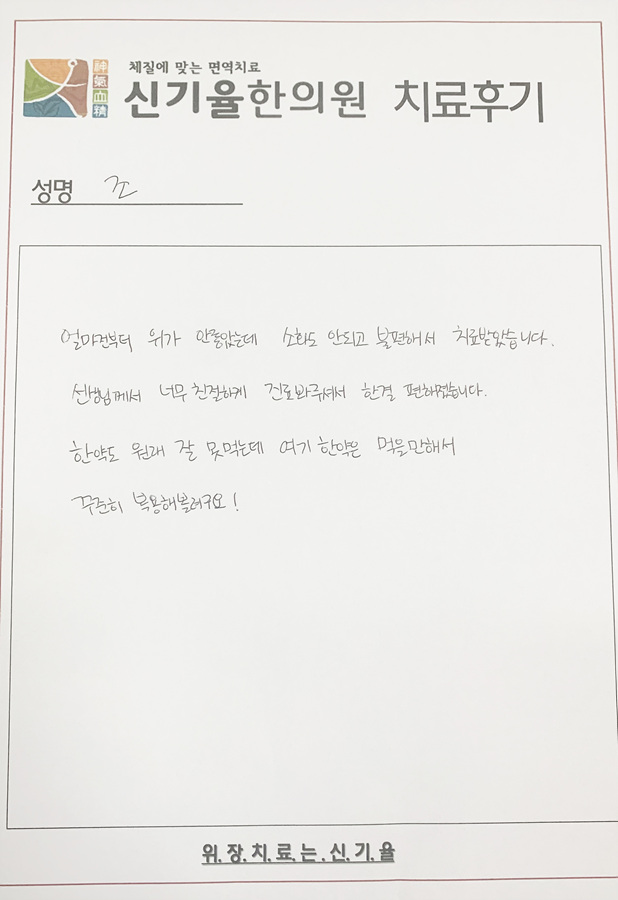 체질에 맞는 면역치료
神氣血精
신기율한의원 치료후기
성명 조
얼마전부터 위가 안좋았는데 소화도 안되고 불편해서 치료받았습니다.
선생님께서 너무 친절하게 진료봐주셔서 한결 편해졌습니다.
한약도 원래 잘 못먹는데 여기 한약은 먹을만해서
꾸준히 복용해볼려구요!
위.장.치.료.는.신.기.율